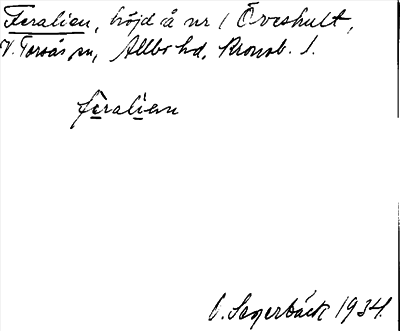 Feralien, höjd å nr 1 Öveshult,
V. Torsås sn, Allbo hd, Kronob. l.
feralien
O. Segerbäck 1934.